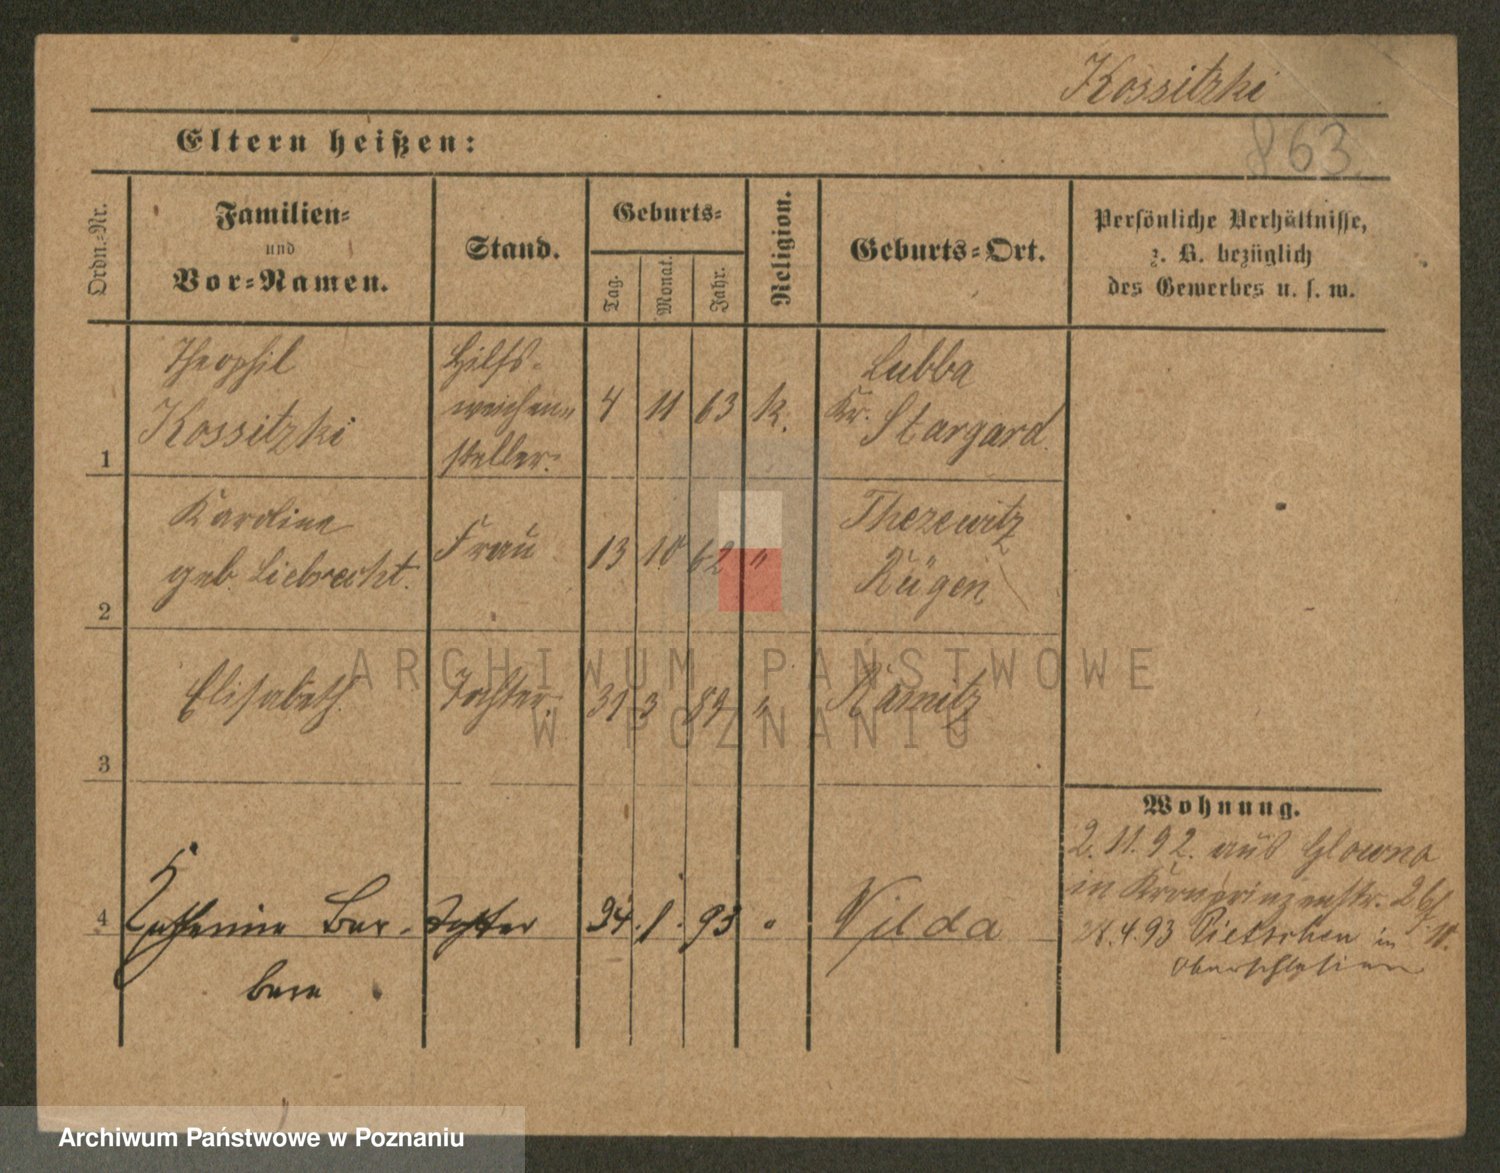 Kossitzki
863
Eltern heißen:
Ordn.-Nr.
Familien-
und
Vor-Namen.
Stand.
Geburts-
Tag.
Monat.
Jahr.
Religion.
Geburts-Ort.
Persönliche Verhältnisse,
z. B. bezüglich
des Gewerbes u. s. w.
1
Theophil
Kossitzki
Hilfs-
weichen-
steller.
4 11 63 k.
Lubba
Kr. Stargard
2
Karoline
geb. Liebrecht.
Frau
13 10 62 "
Rügen
3
Elisabeth.
Tochter.
31 3 89 "
4
Katharina Bar-
bara
Tochter
24. 1. 93 "
Wilda
Wohnung.
2.11.92. aus Glowno
in Kronprinzenstr. 26
28.4.93 Pietschen in
Oberschlesien
ARCHIWUM PAŃSTWOWE
W POZNANIU
Archiwum Państwowe w Poznaniu